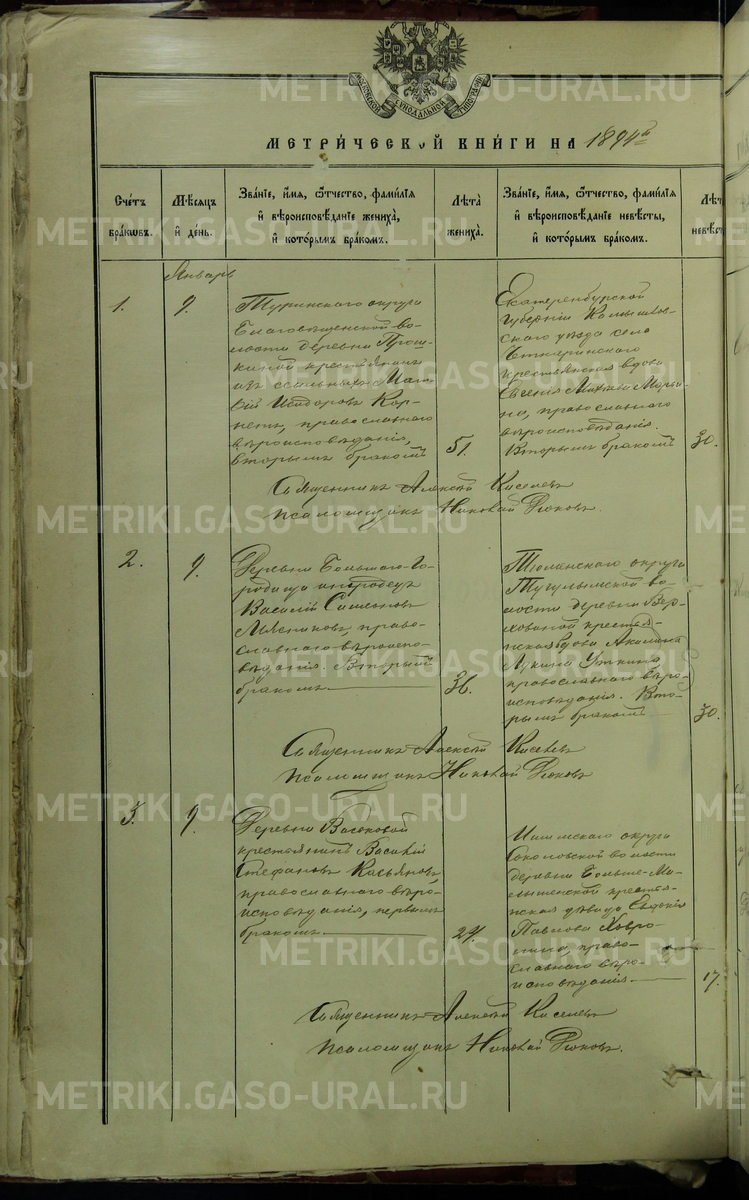 МОСКОВСКОЙ СѴНОДАЛЬНОЙ ТИПОГРАФІИ
МЕТРИ́ЧЕСКОЙ КНИ́ГИ НА 1894 й
Сче́тъ бра́кѡвъ.
Мѣ́сяцъ и҆ де́нь.
Зва́нїе, и҆́мя, ѻ҆́тчество, фами́лїя
и҆ вѣроисповѣ́данїе жениха̀,
и҆ кото́рымъ бра́комъ.
Лѣта̀ жениха̀.
Зва́нїе, и҆́мя, ѻ҆́тчество, фами́лїя
и҆ вѣроисповѣ́данїе невѣ́сты,
и҆ кото́рымъ бра́комъ.
Лѣт
невѣс
Январь
1.
9.
Туринскаго округа
Благовѣщенской во-
лости деревни
крестьянинъ
изъ ссыльныхъ
Исидоровъ Кор-
православнаго
вѣроисповѣданія,
вторымъ бракомъ
51.
Екатеринбургской
губерніи Камышлов-
скаго уѣзда села
Четкаринскаго
крестьянская вдова
Евгенія
православнаго
вѣроисповѣданія.
Вторымъ бракомъ
30.
Священникъ Алексѣй Киселевъ
Псаломщикъ Николай
2.
9.
Деревни Большаго Го-
родища инородецъ
Василій Симеоновъ
Мясниковъ, право-
славнаго вѣроиспо-
вѣданія. Вторымъ
бракомъ
36.
Тюменскаго округа
Тугулымской во-
лости деревни Вер-
ховиной крестья-
нская вдова Акилина
Лукина Уткина
православнаго вѣро-
исповѣданія. Вто-
рымъ бракомъ
30.
Священникъ Алексѣй Киселевъ
Псаломщикъ Николай
3.
9.
Деревни Васьковой
крестьянинъ Василій
Стефановъ Касьяновъ
православнаго вѣро-
исповѣданія, первымъ
бракомъ
29.
Ишимскаго округа
Соколовской волости
деревни Больше-Ма-
лышенской крестья-
нская дѣвица Евфимія
Павлова Ховро-
нина, право-
славнаго вѣро-
исповѣданія.
17.
Священникъ Алексѣй Киселевъ
Псаломщикъ Николай
METRIKI.GASO-URAL.RU